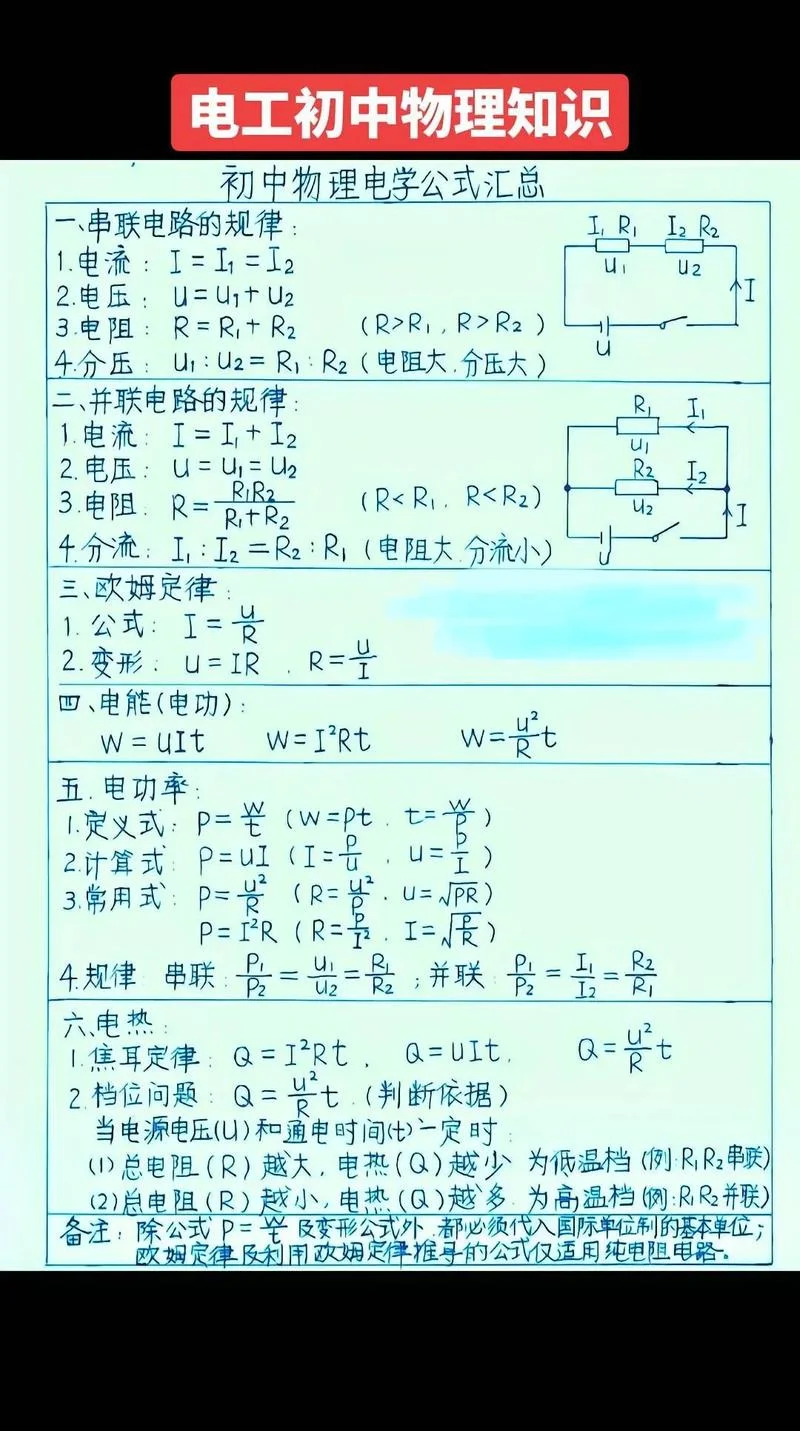 电工初中物理知识
初中物理电学公式汇总
一、串联电路的规律:
1.电流: I = I₁ = I₂
2.电压: U = U₁ + U₂
3.电阻: R = R₁ + R₂ (R>R₁, R>R₂)
4.分压: U₁:U₂ = R₁:R₂ (电阻大.分压大)
I₁ R₁ I₂ R₂
U₁ U₂
I
U
二、并联电路的规律:
1.电流: I = I₁ + I₂
2.电压: U = U₁ = U₂
3.电阻: R = R₁R₂/(R₁+R₂) (R<R₁, R<R₂)
4.分流: I₁:I₂ = R₂:R₁ (电阻大.分流小)
R₁ I₁
U₁
R₂ I₂
U₂
I
U
三、欧姆定律:
1.公式: I = U/R
2.变形: U = IR . R = U/I
四、电能(电功):
W = UIt W = I²Rt W = U²/R t
五.电功率:
1.定义式: P = W/t (W=Pt . t=W/P)
2.计算式: P = UI (I=P/U . U=P/I)
3.常用式: P = U²/R (R=U²/P . U=√PR)
P = I²R (R=P/I² . I=√(P/R))
4.规律 串联: P₁/P₂ = U₁/U₂ = R₁/R₂ ; 并联: P₁/P₂ = I₁/I₂ = R₂/R₁
六、电热:
1.焦耳定律: Q = I²Rt . Q = UIt. Q = U²/R t
2.档位问题: Q = U²/R t .(判断依据)
当电源电压(U)和通电时间(t)一定时:
(1)总电阻(R)越大, 电热(Q)越少 为低温档(例:R₁R₂串联)
(2)总电阻(R)越小, 电热(Q)越多. 为高温档(例:R₁R₂并联)
备注: 除公式 P = W/t 及变形公式外, 都必须代入国际单位制的基本单位;
欧姆定律及利用欧姆定律推导的公式仅适用纯电阻电路。